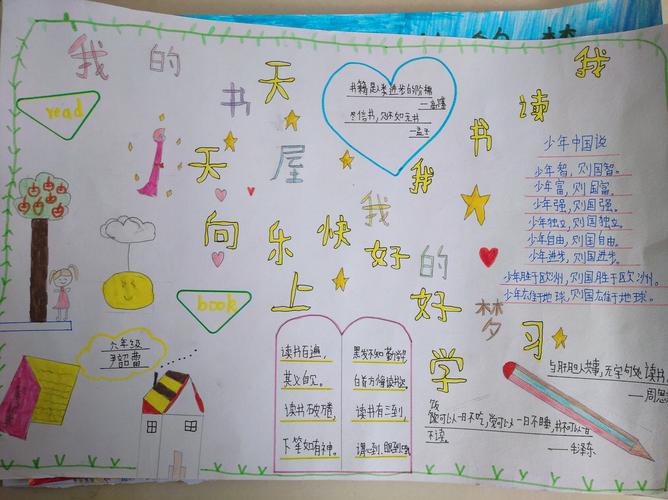 我的书屋
我的梦
我读书我快乐
好好学习
天天向上
read
book
书籍是人类进步的阶梯
尽信书,则不如无书
——孟子
少年中国说
少年智,则国智。
少年富,则国富。
少年强,则国强。
少年独立,则国独立。
少年自由,则国自由。
少年进步,则国进步。
少年胜于欧洲,则国胜于欧洲。
少年雄于地球,则国雄于地球。
六年级
读书百遍,
其义自见。
读书破万卷,
下笔如有神。
黑发不知勤
白首方悔读书迟
读书有三到,
心到 眼到
与肝胆人共事,无字句处读书
——周恩
饭
饭可以一日不吃,觉可以一日不睡,书不可以一日
不读。
——毛泽东